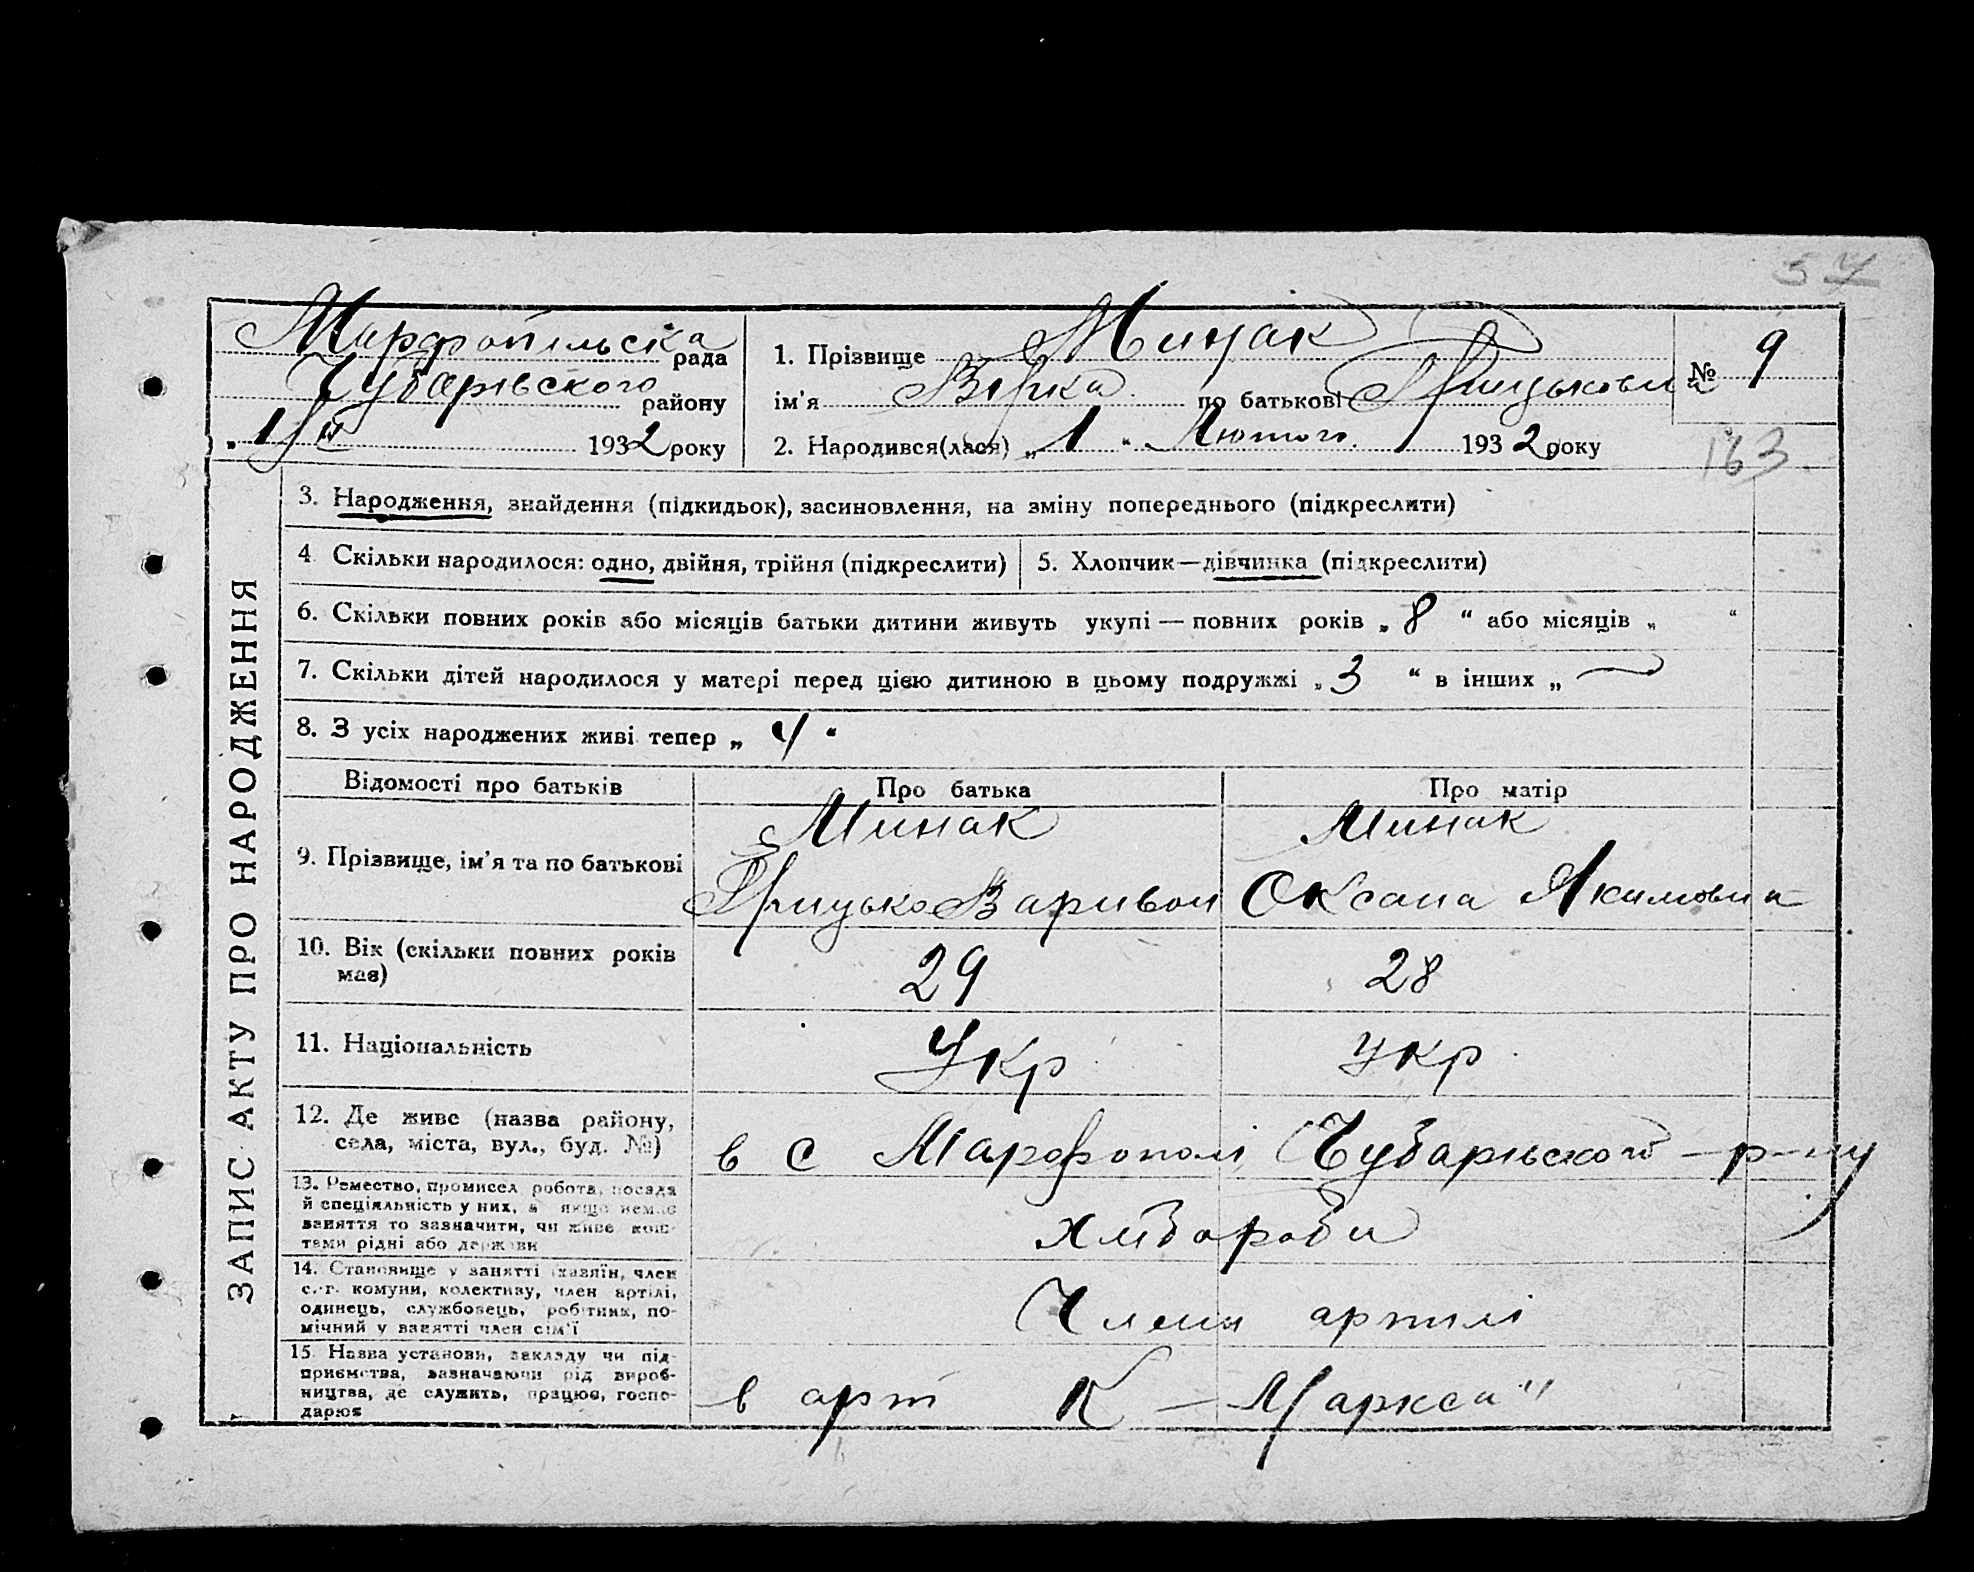 57
Марфопільска рада
Чубарівського району
„1/II 1932 року
1. Прізвище Минак
ім'я Вірка по батькові Грицьковна
2. Народився(лася) „1“ Лютого 1932 року
№ 9
163
ЗАПИС АКТУ ПРО НАРОДЖЕННЯ
3. Народження, знайдення (підкидьок), засиновлення, на зміну попереднього (підкреслити)
4 Скільки народилося: одно, двійня, трійня (підкреслити)
5. Хлопчик—дівчинка (підкреслити)
6. Скільки повних років або місяців батьки дитини живуть укупі — повних років „8“ або місяців „ “
7. Скільки дітей народилося у матері перед цією дитиною в цьому подружжі „3“ в інших „ —
8. З усіх народжених живі тепер „4“
Відомості про батьків
Про батька
Про матір
9. Прізвище, ім'я та по батькові
Минак
Грицько Варивон
Минак
Оксана Якимовна
10. Вік (скільки повних років має)
29
28
11. Національність
Укр
Укр
12. Де живе (назва району,
села, міста, вул., буд. №)
в с Марфополі Чубарівського р-ну
13. Ремество, промисел робота, посада
й спеціяльність у них, а якщо немає
заняття то зазначити, чи живе кош-
тами рідні або держави
хлібороби
14. Становище у занятті (хазяїн, член
с.-г. комуни, колективу, член артілі,
одинець, службовець, робітник, по-
мічний у занятті член сім'ї
Члени артілі
15. Назва установи, закладу чи під-
приємства, зазначаючи рід вироб-
ництва, де служить, працює, госпо-
дарює
в арт К — Маркса"